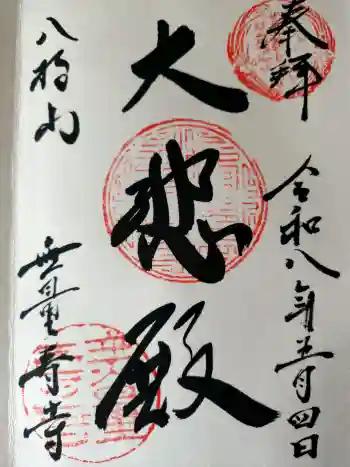 奉拝
令和八年五月四日
大悲殿
八橋山
無量寿寺